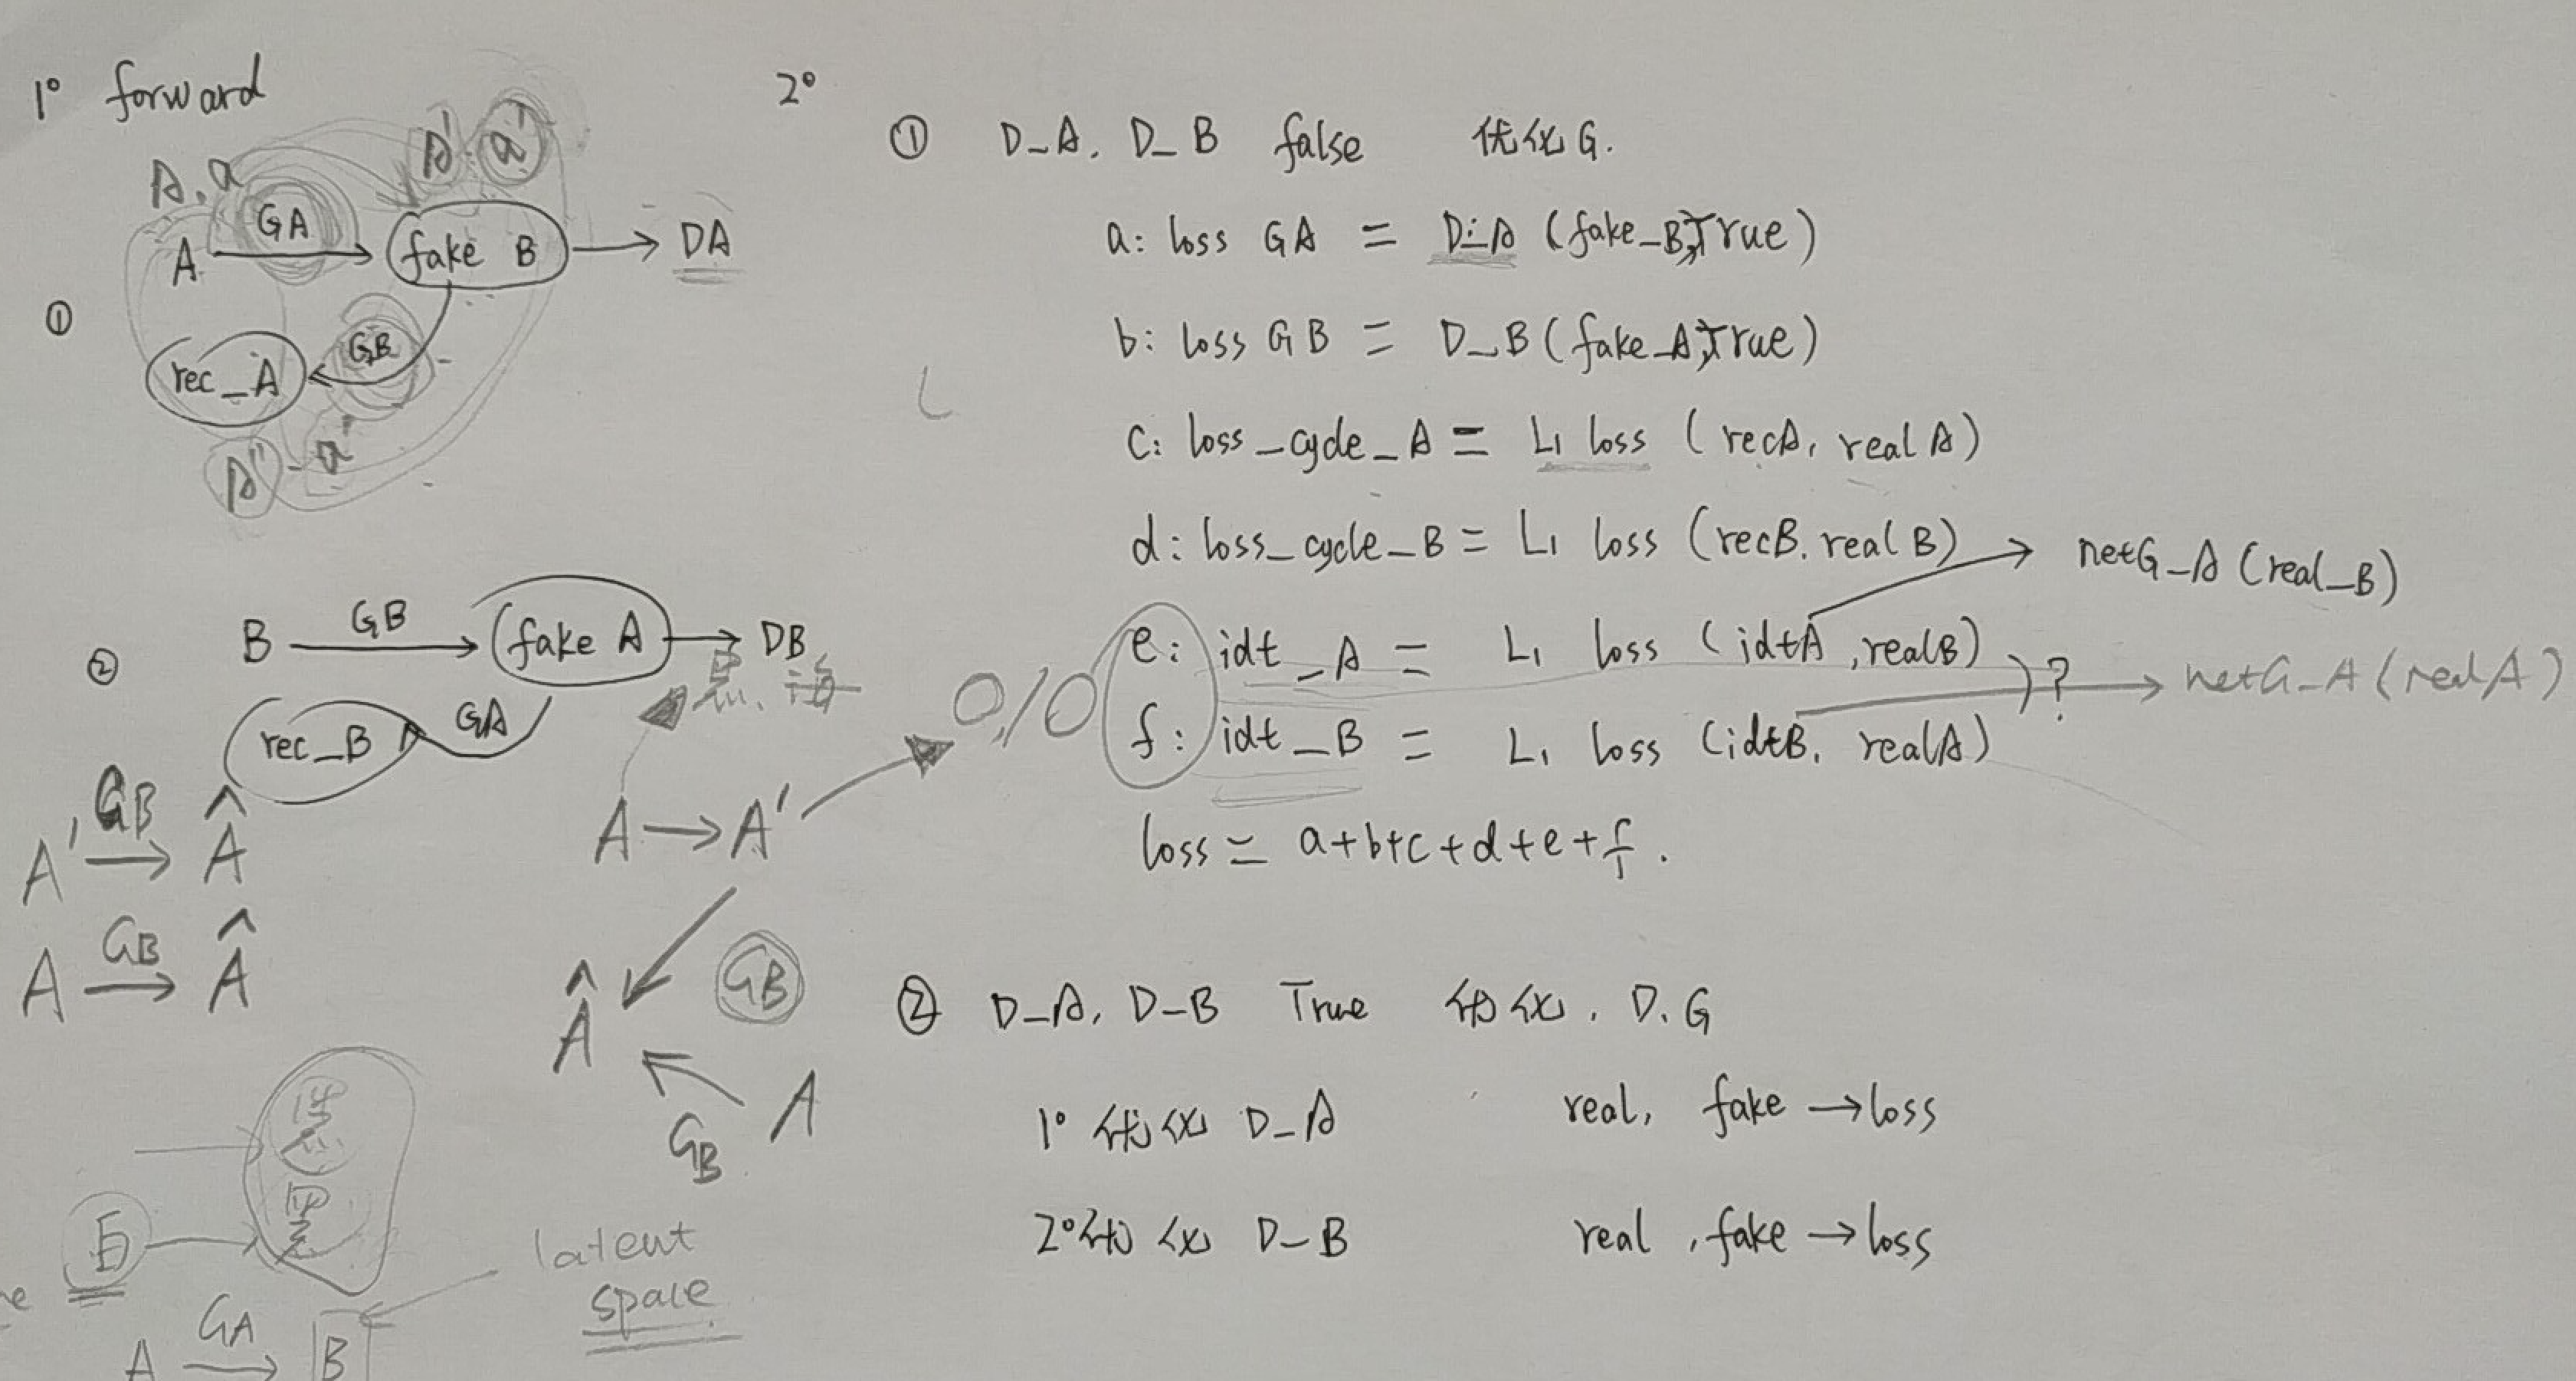 1° forward
A, a
A' a'
A GA fake B DA
①
rec_A GB
A'' - a'
② B GB fake A DB
rec_B GA
A' GB Â
A GB Â
A → A'
0/0
GB
Â
GB A
黑
白
latent
space
A GA B
2°
① D_A, D_B false 优化G.
a: loss GA = D_A (fake_B, True)
b: loss GB = D_B (fake_A, True)
c: loss_cycle_A = L1 loss (recA, realA)
d: loss_cycle_B = L1 loss (recB, realB)
netG_A (real_B)
e: idt_A = L1 loss (idtA, realB)
) ? netG_A (realA)
f: idt_B = L1 loss (idtB, realA)
loss = a+b+c+d+e+f.
② D_A, D_B True 优化, D, G
1° 优化 D_A real, fake → loss
2° 优化 D_B real, fake → loss